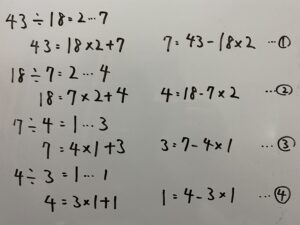 43÷18=2…7
43=18×2+7 7=43-18×2 …①
18÷7=2…4
18=7×2+4 4=18-7×2 …②
7÷4=1…3
7=4×1+3 3=7-4×1 …③
4÷3=1…1
4=3×1+1 1=4-3×1 …④